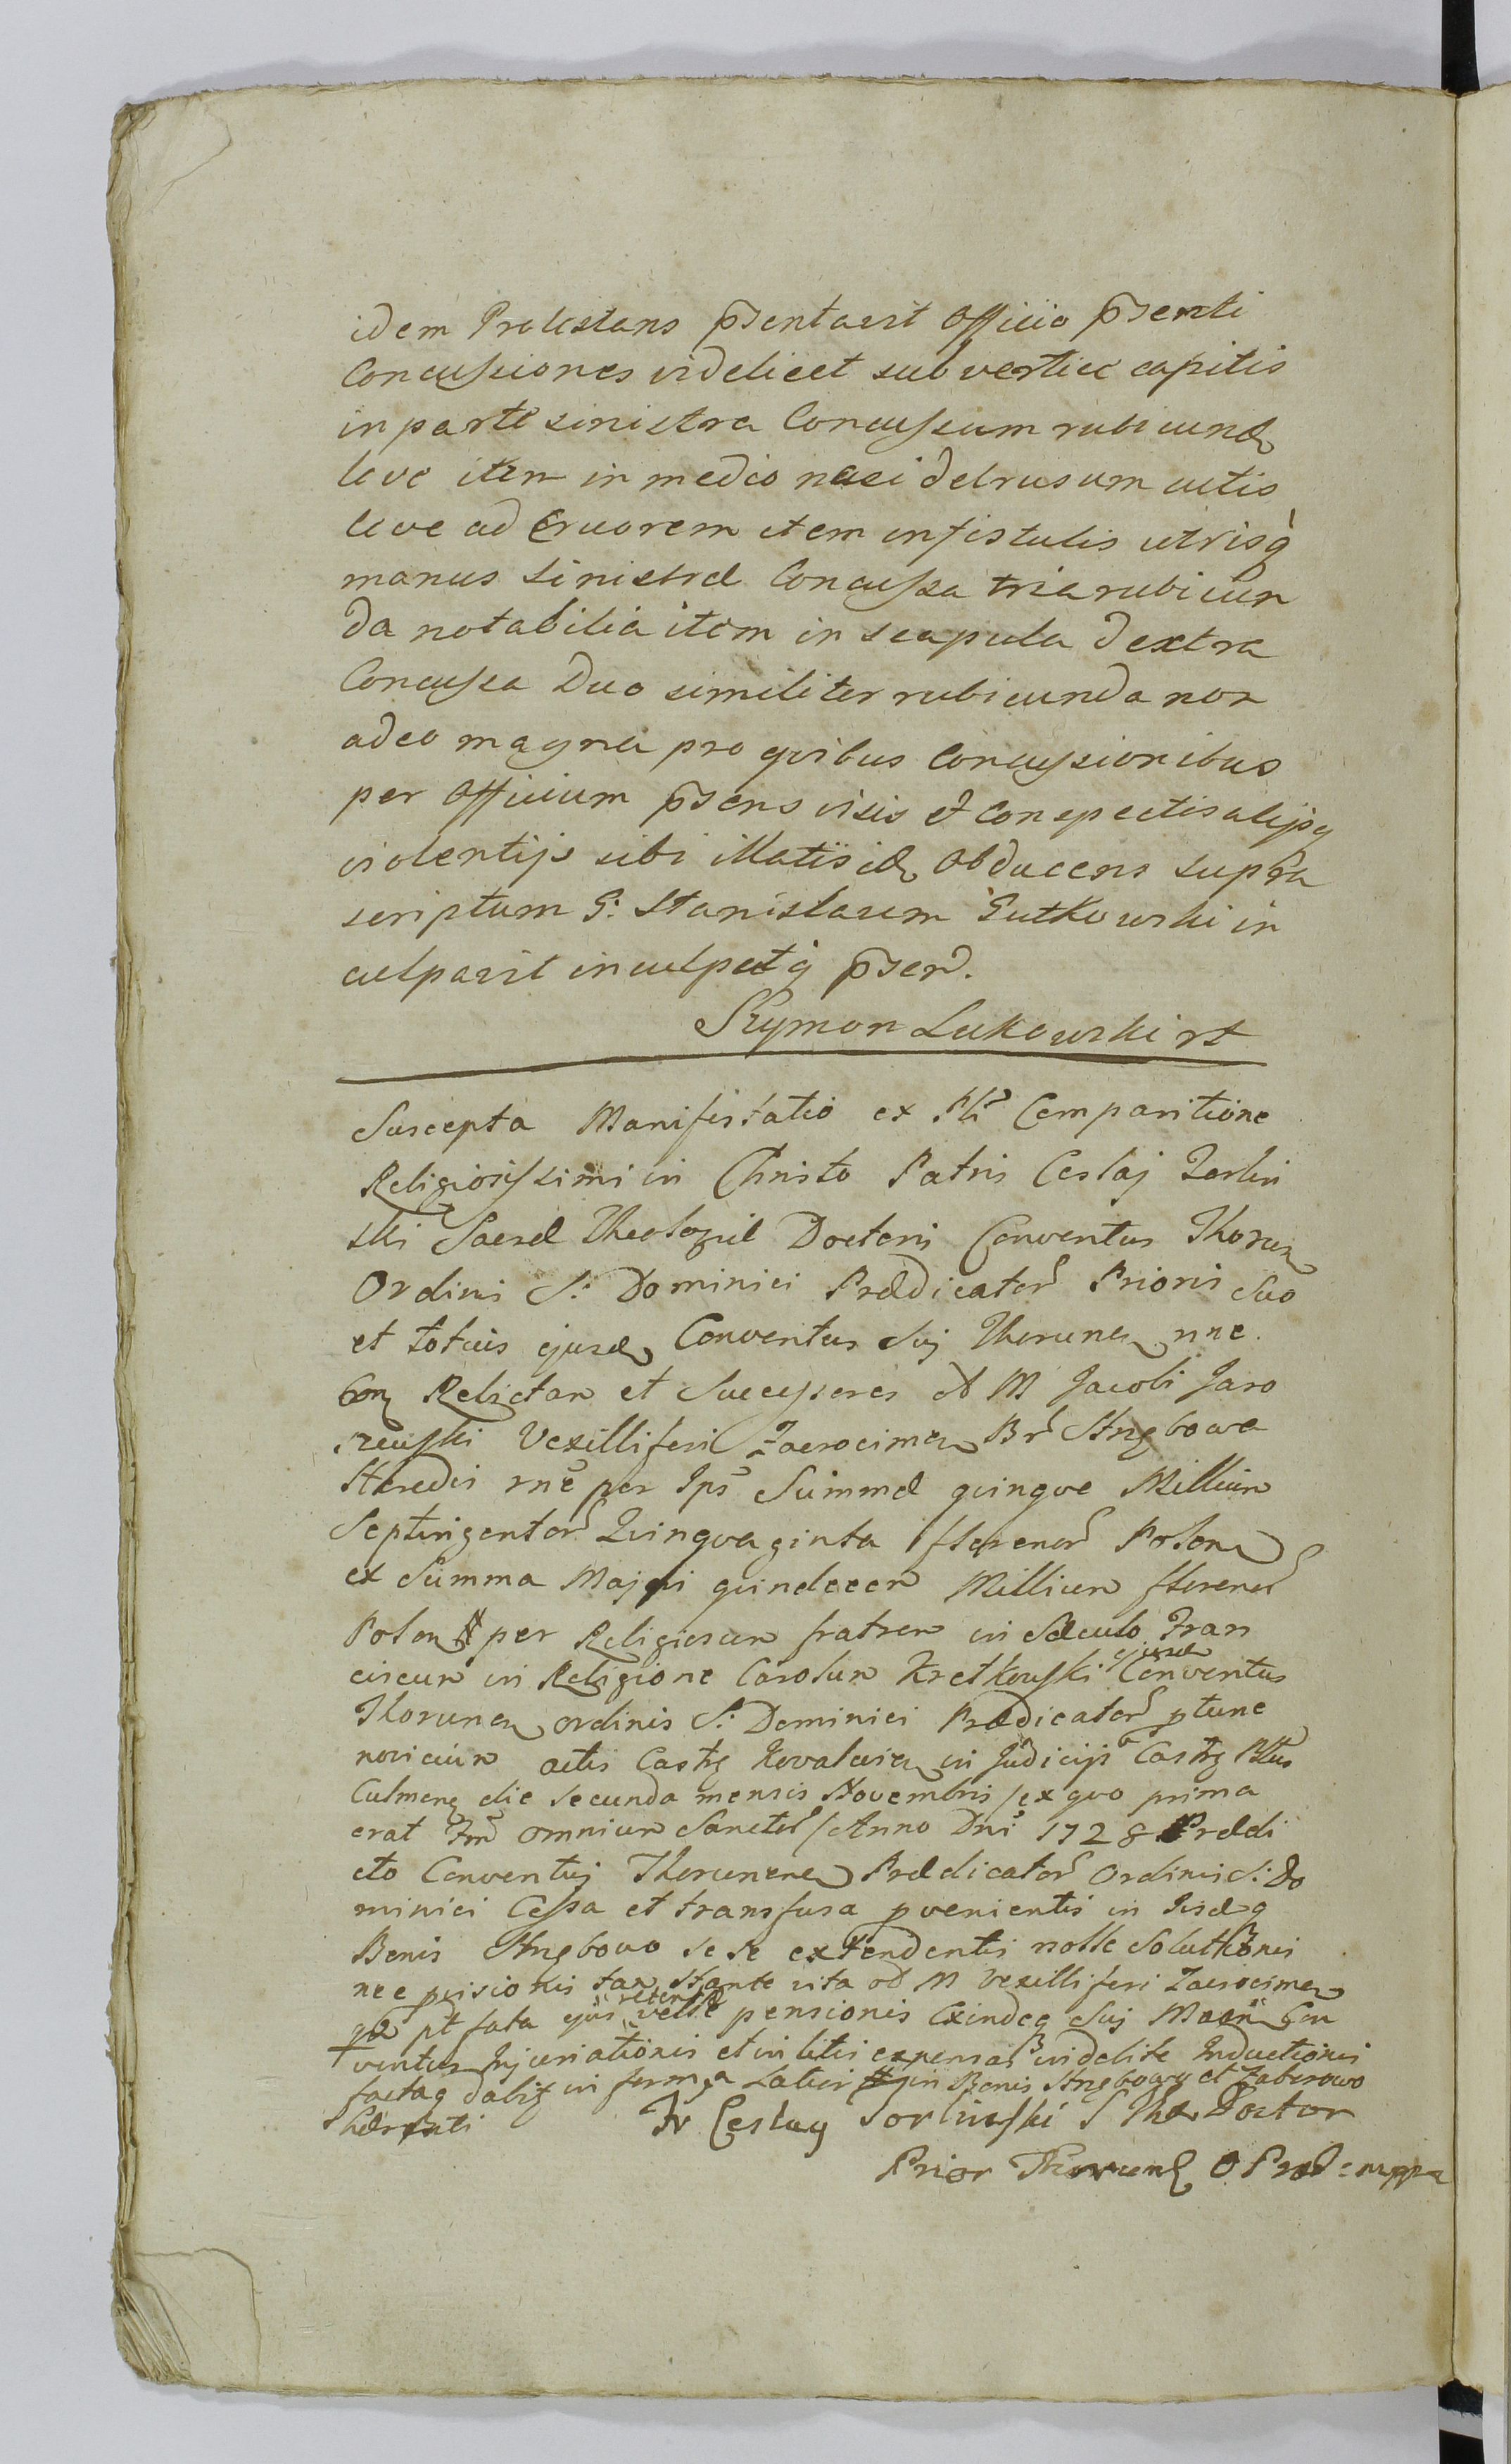 idem Protestans p̃sentavit Officio p̃senti
Concussiones videlicet sub vertice capitis
in parte sinistra Concussum rubicund
leve item in medio nasi detrusum cutis
leve ad cruorem item in fistulis utrisq
manus sinistræ Concussa tria rubicun
da notabilia item in scapula dextra
Concussa Duo similiter rubicunda non
adeo magna pro qvibus Concussionibus
per Officium p̃sens visis et conspectis alijsq
violentijs sibi illatis id Obducens supra
scriptum G: Stanislaum Gutkowski in
culpavit inculpatq p̃sen.
Szymon Lukowski rt
Suscepta Manifestatio ex Comparitione
Religiosissimi in Christo Patris Ceslaj Zorlin
ski Sacræ Theologiæ Doctoris Conventus Thorun
Ordinis S: Dominici Prædicator Prioris Suo
et totius ejusd Conventus Sui Thorunen nne.
Relictam et Successores M Jacobi Jaro
szewski Vexilliferi Zacrocimen Br Strzgbowa
Hæredis rne per Ips Summæ qvinqve Millium
Septingentor Qvinqvaginta fflorenor Polon
ex Summa Majori qvindecem Millium fflorenor
Polon per Religiosum fratrem in Sæculo Fran
ciscum in Religione Carolum Kretkowski ejusd Conventus
Thorunen ordinis S: Dominici Prædicator ptunc
novicium actis Castr Kovalevien in Judicijs Castr Pltus
Culmen die Secunda mensis Novembris /ex qvo prima
erat omnium Sanctor/ Anno Dni 1728 Prædi
cto Conventuj Thorunen Prædicator Ordinis S: Do
minici Cessa et transfusa pvenientis in iisdq
Bonis Strzgbowo se se extendentis nolle Solutionis
nec pensionis tam stante vita M Vexilliferi Zacrocimen
qm pt fata ejus retentæ velle pensionis Exindeq Suj Con
ventus Injuriationis et in litis expensas videlite Inductionis
factaq dabit in forma Latiori in Bonis Strzgbowo et Zaborowo
hærenti Fr Ceslaus Sorlinski S The Doctor
Prior Thorun O Præd: mppa